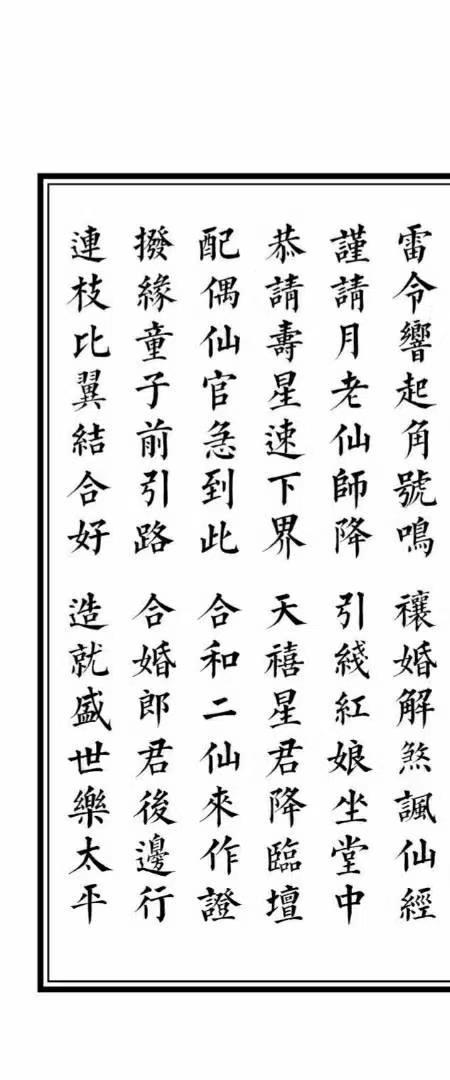 雷令響起角號鳴　禳婚解煞諷仙經
謹請月老仙師降　引綫紅娘坐堂中
恭請壽星速下界　天禧星君降臨壇
配偶仙官急到此　合和二仙來作證
撥緣童子前引路　合婚郎君後邊行
連枝比翼結合好　造就盛世樂太平